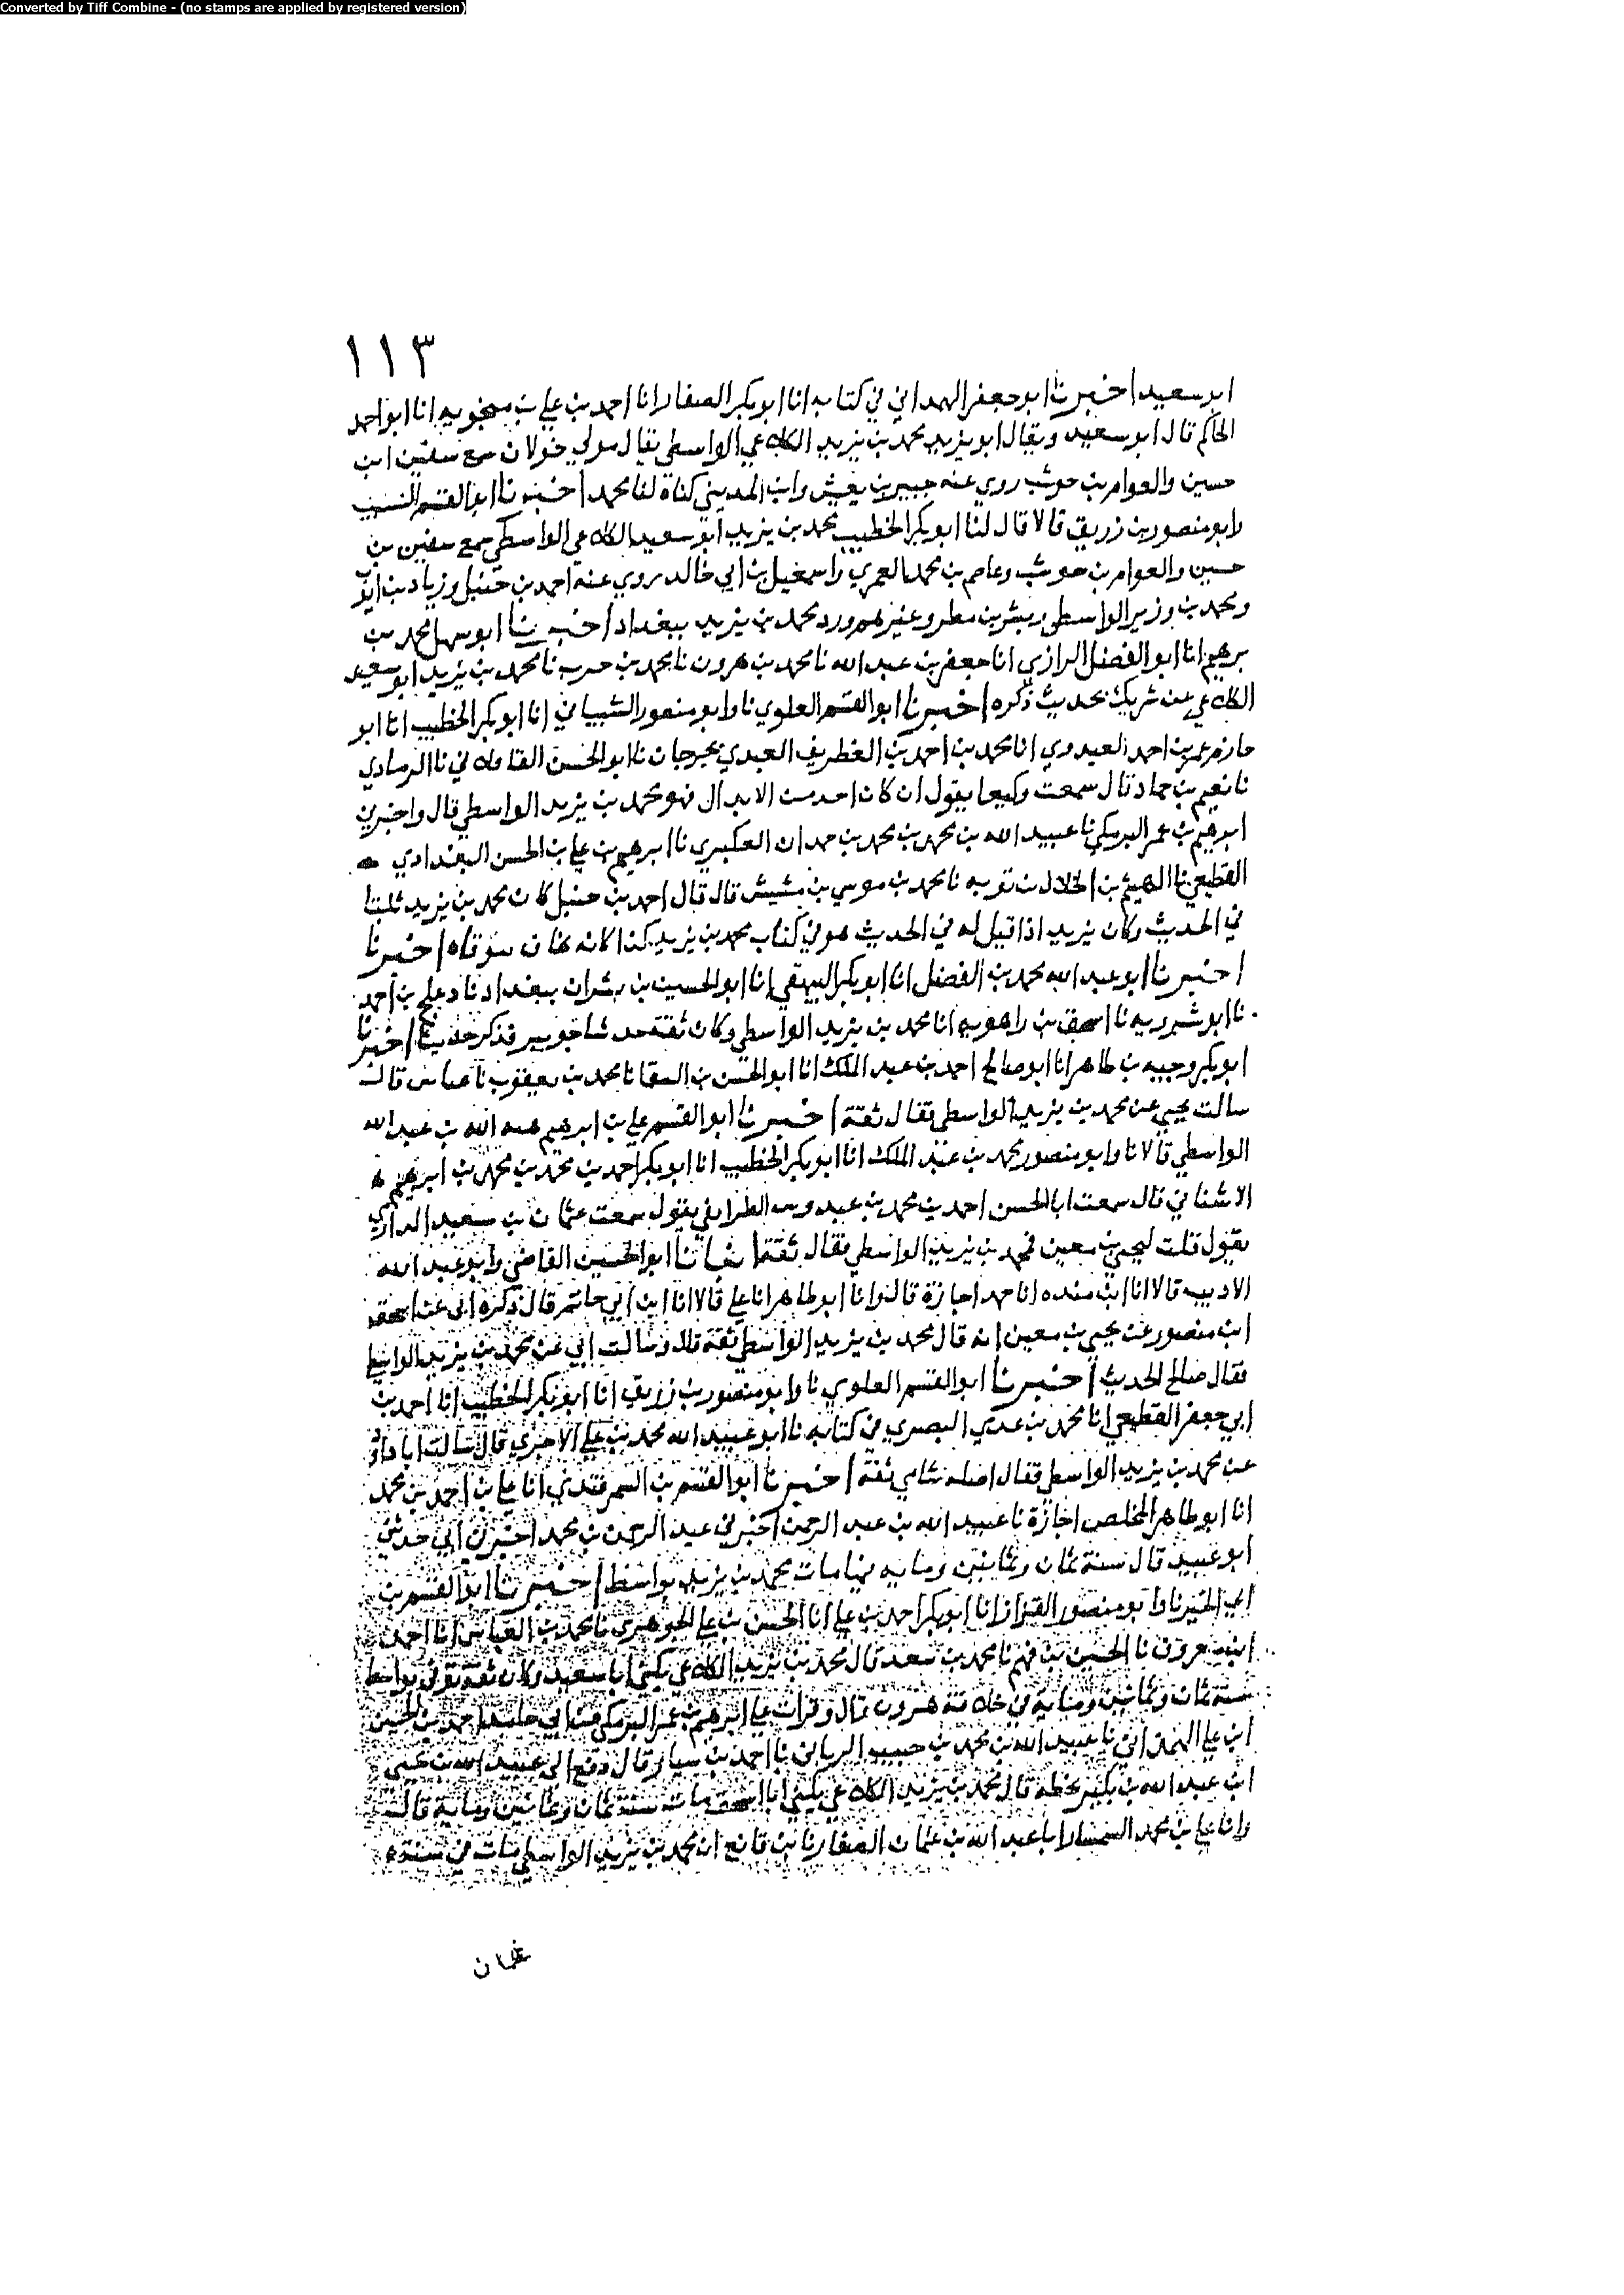 Converted by Tiff Combine - (no stamps are applied by registered version)
١١٣
ابو سعيد اخبرنا ابو جعفر الهمداني في كتابه انا ابو بكر الصفار انا احمد بن علي بن منجويه انا ابو احمد
الحاكم قال ابو سعيد ويقال ابو يزيد محمد بن يزيد الكلاعي الواسطي يقال مولي خولان سمع سفين ابن
حسين والعوام بن حوشب روي عنه جبير بن يعيش وابن المديني كناه لنا محمد اخبرنا ابو القسم النسيب
وابو منصور بن زريق قالا قال لنا ابو بكر الخطيب محمد بن يزيد ابو سعيد الكلاعي الواسطي سمع سفين بن
حسين والعوام بن حوشب وعاصم بن محمد العمري واسمعيل بن ابي خالد روي عنه احمد بن حنبل وزياد بن ايوب
ومحمد بن وزير الواسطي وبشر بن مطر وغيرهم ورد محمد بن يزيد ببغداد اخبرنا ابو سهل محمد بن
برهيم انا ابو الفضل الرازي انا جعفر بن عبد الله نا محمد بن هرون نا محمد بن حرب نا محمد بن يزيد ابو سعيد
الكلاعي عن شريك بحديث ذكره اخبرنا ابو القسم العلوي نا وابو منصور الشيباني انا ابو بكر الخطيب انا ابو
حازم عمر بن احمد العبدوي انا محمد بن احمد بن الغطريف العبدي بجرجان نا ابو الحسن القافلاني نا الرمادي
نا نعيم بن حماد قال سمعت وكيعا يقول ان كان احد من الابدال فهو محمد بن يزيد الواسطي قال واخبرني
ابرهيم بن عمر البرمكي نا عبيد الله بن محمد بن محمد بن حمدان العكبري نا ابرهيم بن علي بن الحسن البغدادي
القطيعي نا الهيثم بن الخلال بن توبه نا محمد بن موسي بن مشيش قال قال احمد بن حنبل كان محمد بن يزيد ثبتا
في الحديث وكان يزيد اذا قيل له في الحديث هو في كتاب محمد بن يزيد كذا كانه يخاف اخبرنا
اخبرنا ابو عبد الله محمد بن الفضل انا ابو بكر البيهقي انا ابو الحسين بن بشران ببغداد نا دعلج بن احمد
نا ابو شيرويه نا اسحق بن راهويه انا محمد بن يزيد الواسطي وكان ثقة حدثنا جويبر فذكر حديثا اخبرنا
ابو بكر وجيه بن طاهر انا ابو صالح احمد بن عبد الملك انا ابو الحسن بن السقا نا محمد بن يعقوب نا عباس قال
سالت يحيي عن محمد بن يزيد الواسطي فقال ثقة اخبرنا ابو القسم علي بن ابرهيم هبه الله بن عبد الله
الواسطي قالا نا وابو منصور محمد بن عبد الملك انا ابو بكر الخطيب انا ابو بكر احمد بن محمد بن محمد بن ابرهيم
الاشناني قال سمعت ابا الحسن احمد بن محمد بن عبدوس الطرايفي يقول سمعت عثمان بن سعيد الدارمي
يقول قلت ليحيي بن معين فمحمد بن يزيد الواسطي فقال ثقة انبانا ابو الحسين القاضي وابو عبد الله
الاديب قالا انا ابن منده انا حمد اجازة قال وانا ابو طاهر انا علي قالا انا ابن ابي حاتم قال ذكره ابي عن اسحق
ابن منصور عن يحيي بن معين انه قال محمد بن يزيد الواسطي ثقة قال وسالت ابي عن محمد بن يزيد الواسطي
فقال صالح الحديث اخبرنا ابو القسم العلوي نا وابو منصور بن زريق انا ابو بكر الخطيب انا احمد بن
ابي جعفر القطيعي انا محمد بن عدي البصري في كتابه نا ابو عبيد الله محمد بن علي الاجري قال سالت ابا داود
عن محمد بن يزيد الواسطي فقال اصله شامي ثقة اخبرنا ابو القسم بن السمرقندي انا علي بن احمد بن محمد
انا ابو طاهر المخلص اجازة نا عبيد الله بن عبد الرحمن اخبرني عبد الرحمن بن محمد اخبرني ابي حدثني
ابو عبيد قال سنة ثمان وثمانين ومايه فيها مات محمد بن يزيد بواسط اخبرنا ابو القسم بن
ابي الجن نا وابو منصور القزاز انا ابو بكر احمد بن علي انا الحسن بن علي الجوهري نا محمد بن العباس انا احمد
ابن معروف نا الحسين بن فهم نا محمد بن سعد قال محمد بن يزيد الكلاعي يكني ابا سعيد وكان ثقة توفي بواسط
سنة ثمان وثمانين ومايه في خلافة هرون قال وقرات علي ابرهيم بن عمر البرمكي عن ابي حامد احمد بن الحسين
ابن علي الهمذاني نا عبيد الله بن محمد بن حبيب نا احمد بن سيار قال دفع الي عبيد الله بن يحيي
ابن عبد الله بن بكير بخطه قال محمد بن يزيد الكلاعي يكني ابا اسحق مات سنة ثمان وثمانين ومايه قال
وانا علي بن محمد السمسار ابا عبد الله بن عثمان الصفار نا بن قانع ان محمد بن يزيد الواسطي مات في سنة
ثمان